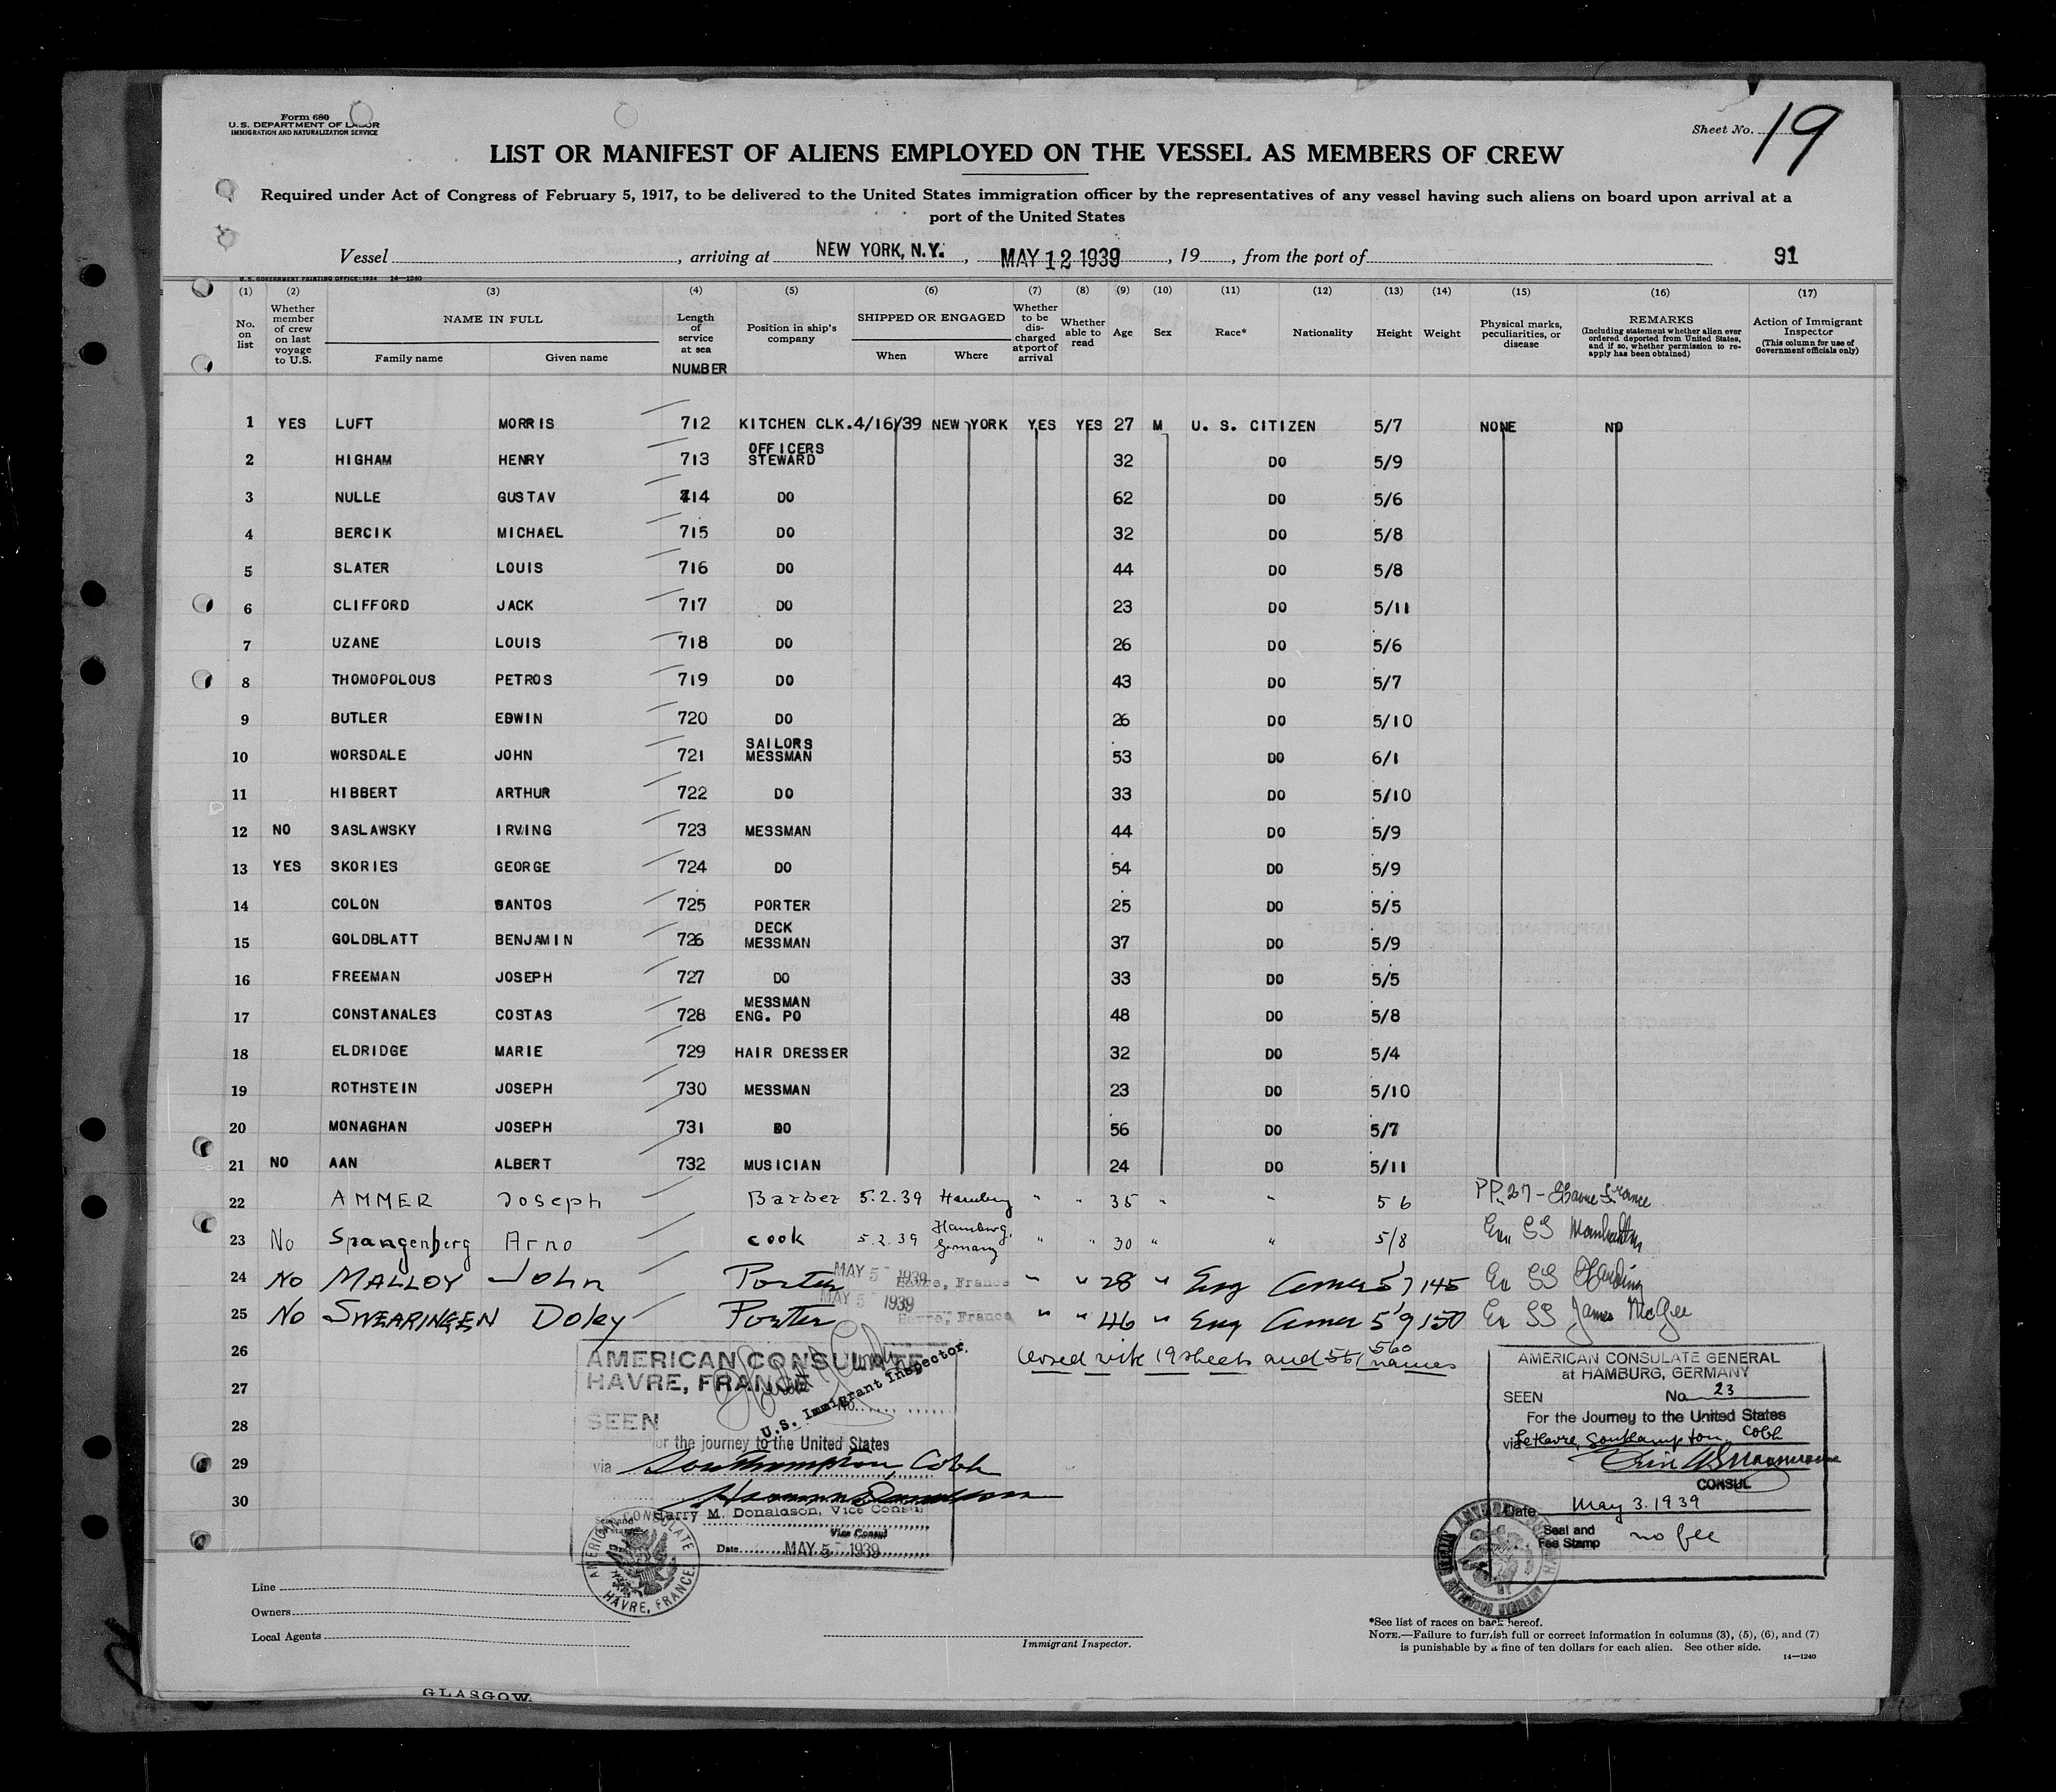 Form 680
U. S. DEPARTMENT OF LABOR
IMMIGRATION AND NATURALIZATION SERVICE
Sheet No. 19
LIST OR MANIFEST OF ALIENS EMPLOYED ON THE VESSEL AS MEMBERS OF CREW
Required under Act of Congress of February 5, 1917, to be delivered to the United States immigration officer by the representatives of any vessel having such aliens on board upon arrival at a
port of the United States
Vessel , arriving at NEW YORK, N.Y. , MAY 12 1939 , 19 , from the port of 91
U. S. GOVERNMENT PRINTING OFFICE: 1934 14—1240
(1) (2) (3) (4) (5) (6) (7) (8) (9) (10) (11) (12) (13) (14) (15) (16) (17)
No. on list
Whether member of crew on last voyage to U.S.
NAME IN FULL
Family name Given name
Length of service at sea
NUMBER
Position in ship's company
SHIPPED OR ENGAGED
When Where
Whether to be discharged at port of arrival
Whether able to read
Age Sex Race* Nationality Height Weight
Physical marks, peculiarities, or disease
REMARKS
(Including statement whether alien ever ordered deported from United States, and if so, whether permission to reapply has been obtained)
Action of Immigrant Inspector
(This column for use of Government officials only)
1 YES LUFT MORRIS 712 KITCHEN CLK. 4/16/39 NEW YORK YES YES 27 M U. S. CITIZEN 5/7 NONE NO
2 HIGHAM HENRY 713 OFFICERS STEWARD 32 DO 5/9
3 NULLE GUSTAV 714 DO 62 DO 5/6
4 BERCIK MICHAEL 715 DO 32 DO 5/8
5 SLATER LOUIS 716 DO 44 DO 5/8
6 CLIFFORD JACK 717 DO 23 DO 5/11
7 UZANE LOUIS 718 DO 26 DO 5/6
8 THOMOPOLOUS PETROS 719 DO 43 DO 5/7
9 BUTLER EDWIN 720 DO 26 DO 5/10
10 WORSDALE JOHN 721 SAILORS MESSMAN 53 DO 6/1
11 HIBBERT ARTHUR 722 DO 33 DO 5/10
12 NO SASLAWSKY IRVING 723 MESSMAN 44 DO 5/9
13 YES SKORIES GEORGE 724 DO 54 DO 5/9
14 COLON SANTOS 725 PORTER 25 DO 5/5
15 GOLDBLATT BENJAMIN 726 DECK MESSMAN 37 DO 5/9
16 FREEMAN JOSEPH 727 DO 33 DO 5/5
17 CONSTANALES COSTAS 728 MESSMAN ENG. PO 48 DO 5/8
18 ELDRIDGE MARIE 729 HAIR DRESSER 32 DO 5/4
19 ROTHSTEIN JOSEPH 730 MESSMAN 23 DO 5/10
20 MONAGHAN JOSEPH 731 DO 56 DO 5/7
21 NO AAN ALBERT 732 MUSICIAN 24 DO 5/11
22 AMMER Joseph Barber 5.2.39 Hamburg " " 35 " " 5 6 PP. 27 - Havre France
23 No Spangenberg Arno cook 5.2.39 Hamburg, Germany " " 30 " " 5/8 Ex SS Manhattan
24 No MALLOY John Porter MAY 5 1939 Havre, France " " 28 " Eng Amer 5'7 145 Ex SS Harding
25 No SWEARINGEN Doley Porter MAY 5 1939 Havre, France " " 46 " Eng Amer 5'9 150 Ex SS James McGee
26 Closed with 19 sheets and 561 560 names
27
28
29
30
AMERICAN CONSULATE
HAVRE, FRANCE
No.
U.S. Immigrant Inspector.
SEEN
for the journey to the United States
via Southampton, Cobh
Harry M. Donaldson, Vice Consul
Vice Consul
Date MAY 5 - 1939
AMERICAN CONSULATE HAVRE, FRANCE
AMERICAN CONSULATE GENERAL
at HAMBURG, GERMANY
SEEN No. 23
For the Journey to the United States
via LeHavre, Southampton, Cobh
CONSUL
Date May 3. 1939
Seal and
Fee Stamp no fee
Line
Owners
Local Agents
Immigrant Inspector.
*See list of races on back hereof.
NOTE.—Failure to furnish full or correct information in columns (3), (5), (6), and (7)
is punishable by a fine of ten dollars for each alien. See other side.
14—1240
GLASGOW.